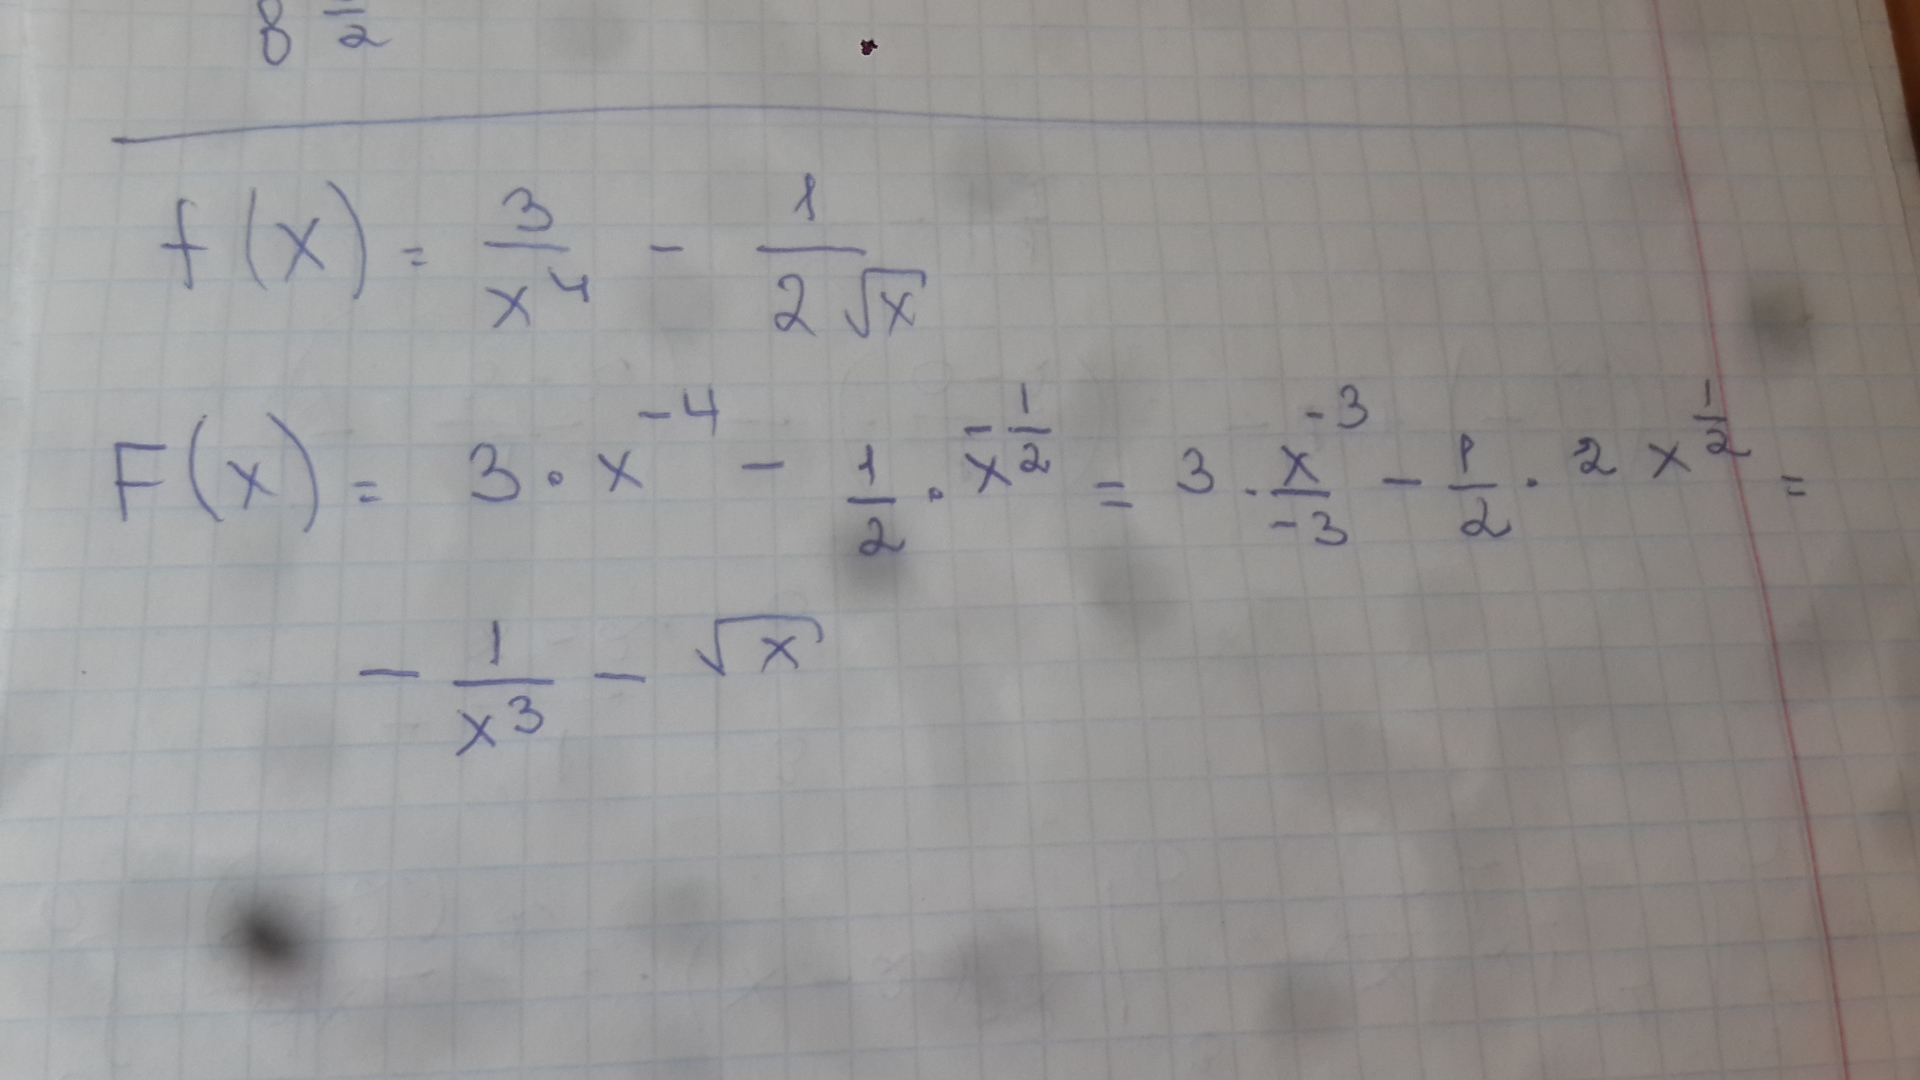 8 1/2
f(x) = 3/x^4 - 1/(2√x)
F(x) = 3 · x^-4 - 1/2 · x^-1/2 = 3 · x^-3/-3 - 1/2 · 2 x^1/2 =
- 1/x^3 - √x